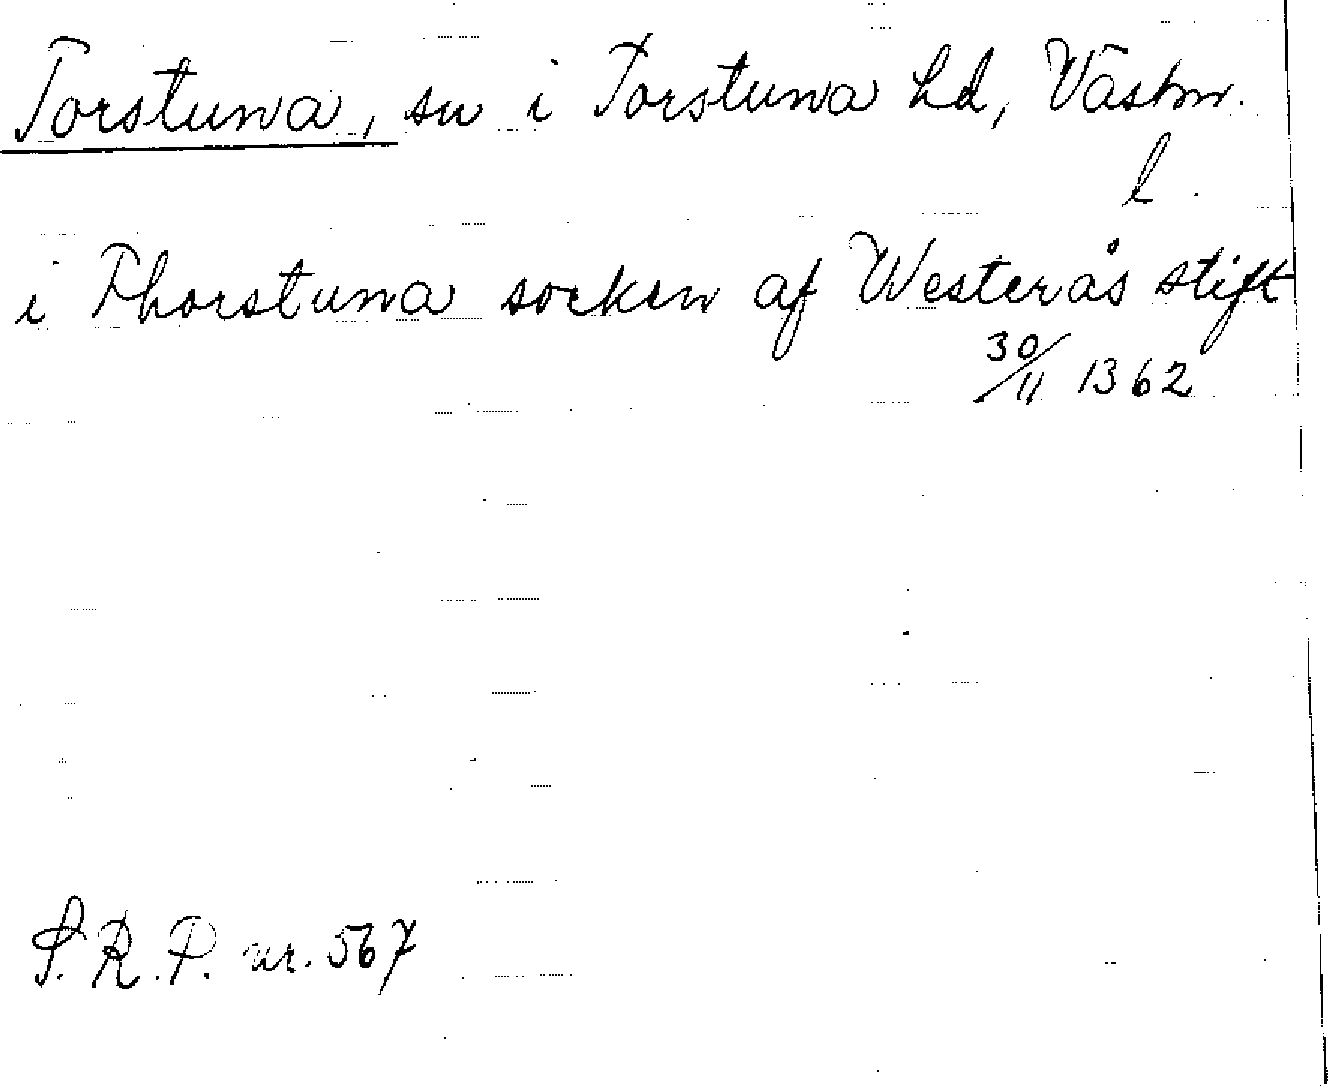 Torstuna, sn i Torstuna hd, Västm.
l.
i Thorstuna socken af Westerås stift
30/11 1362
S.R.P. nr. 567